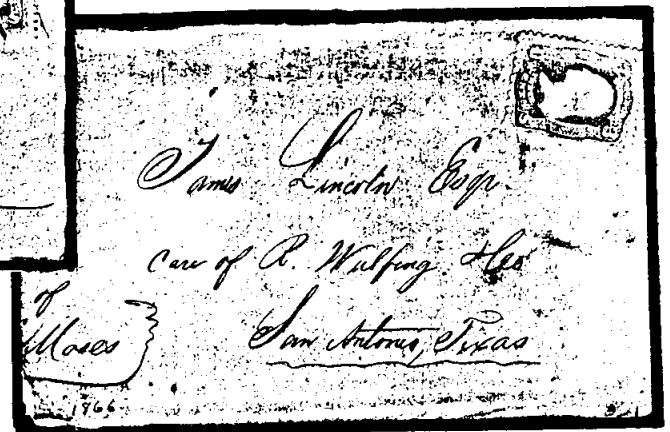 James Lincoln Esqr.
Care of R. Wulfing
San Antonio, Texas
of
Moses
1866